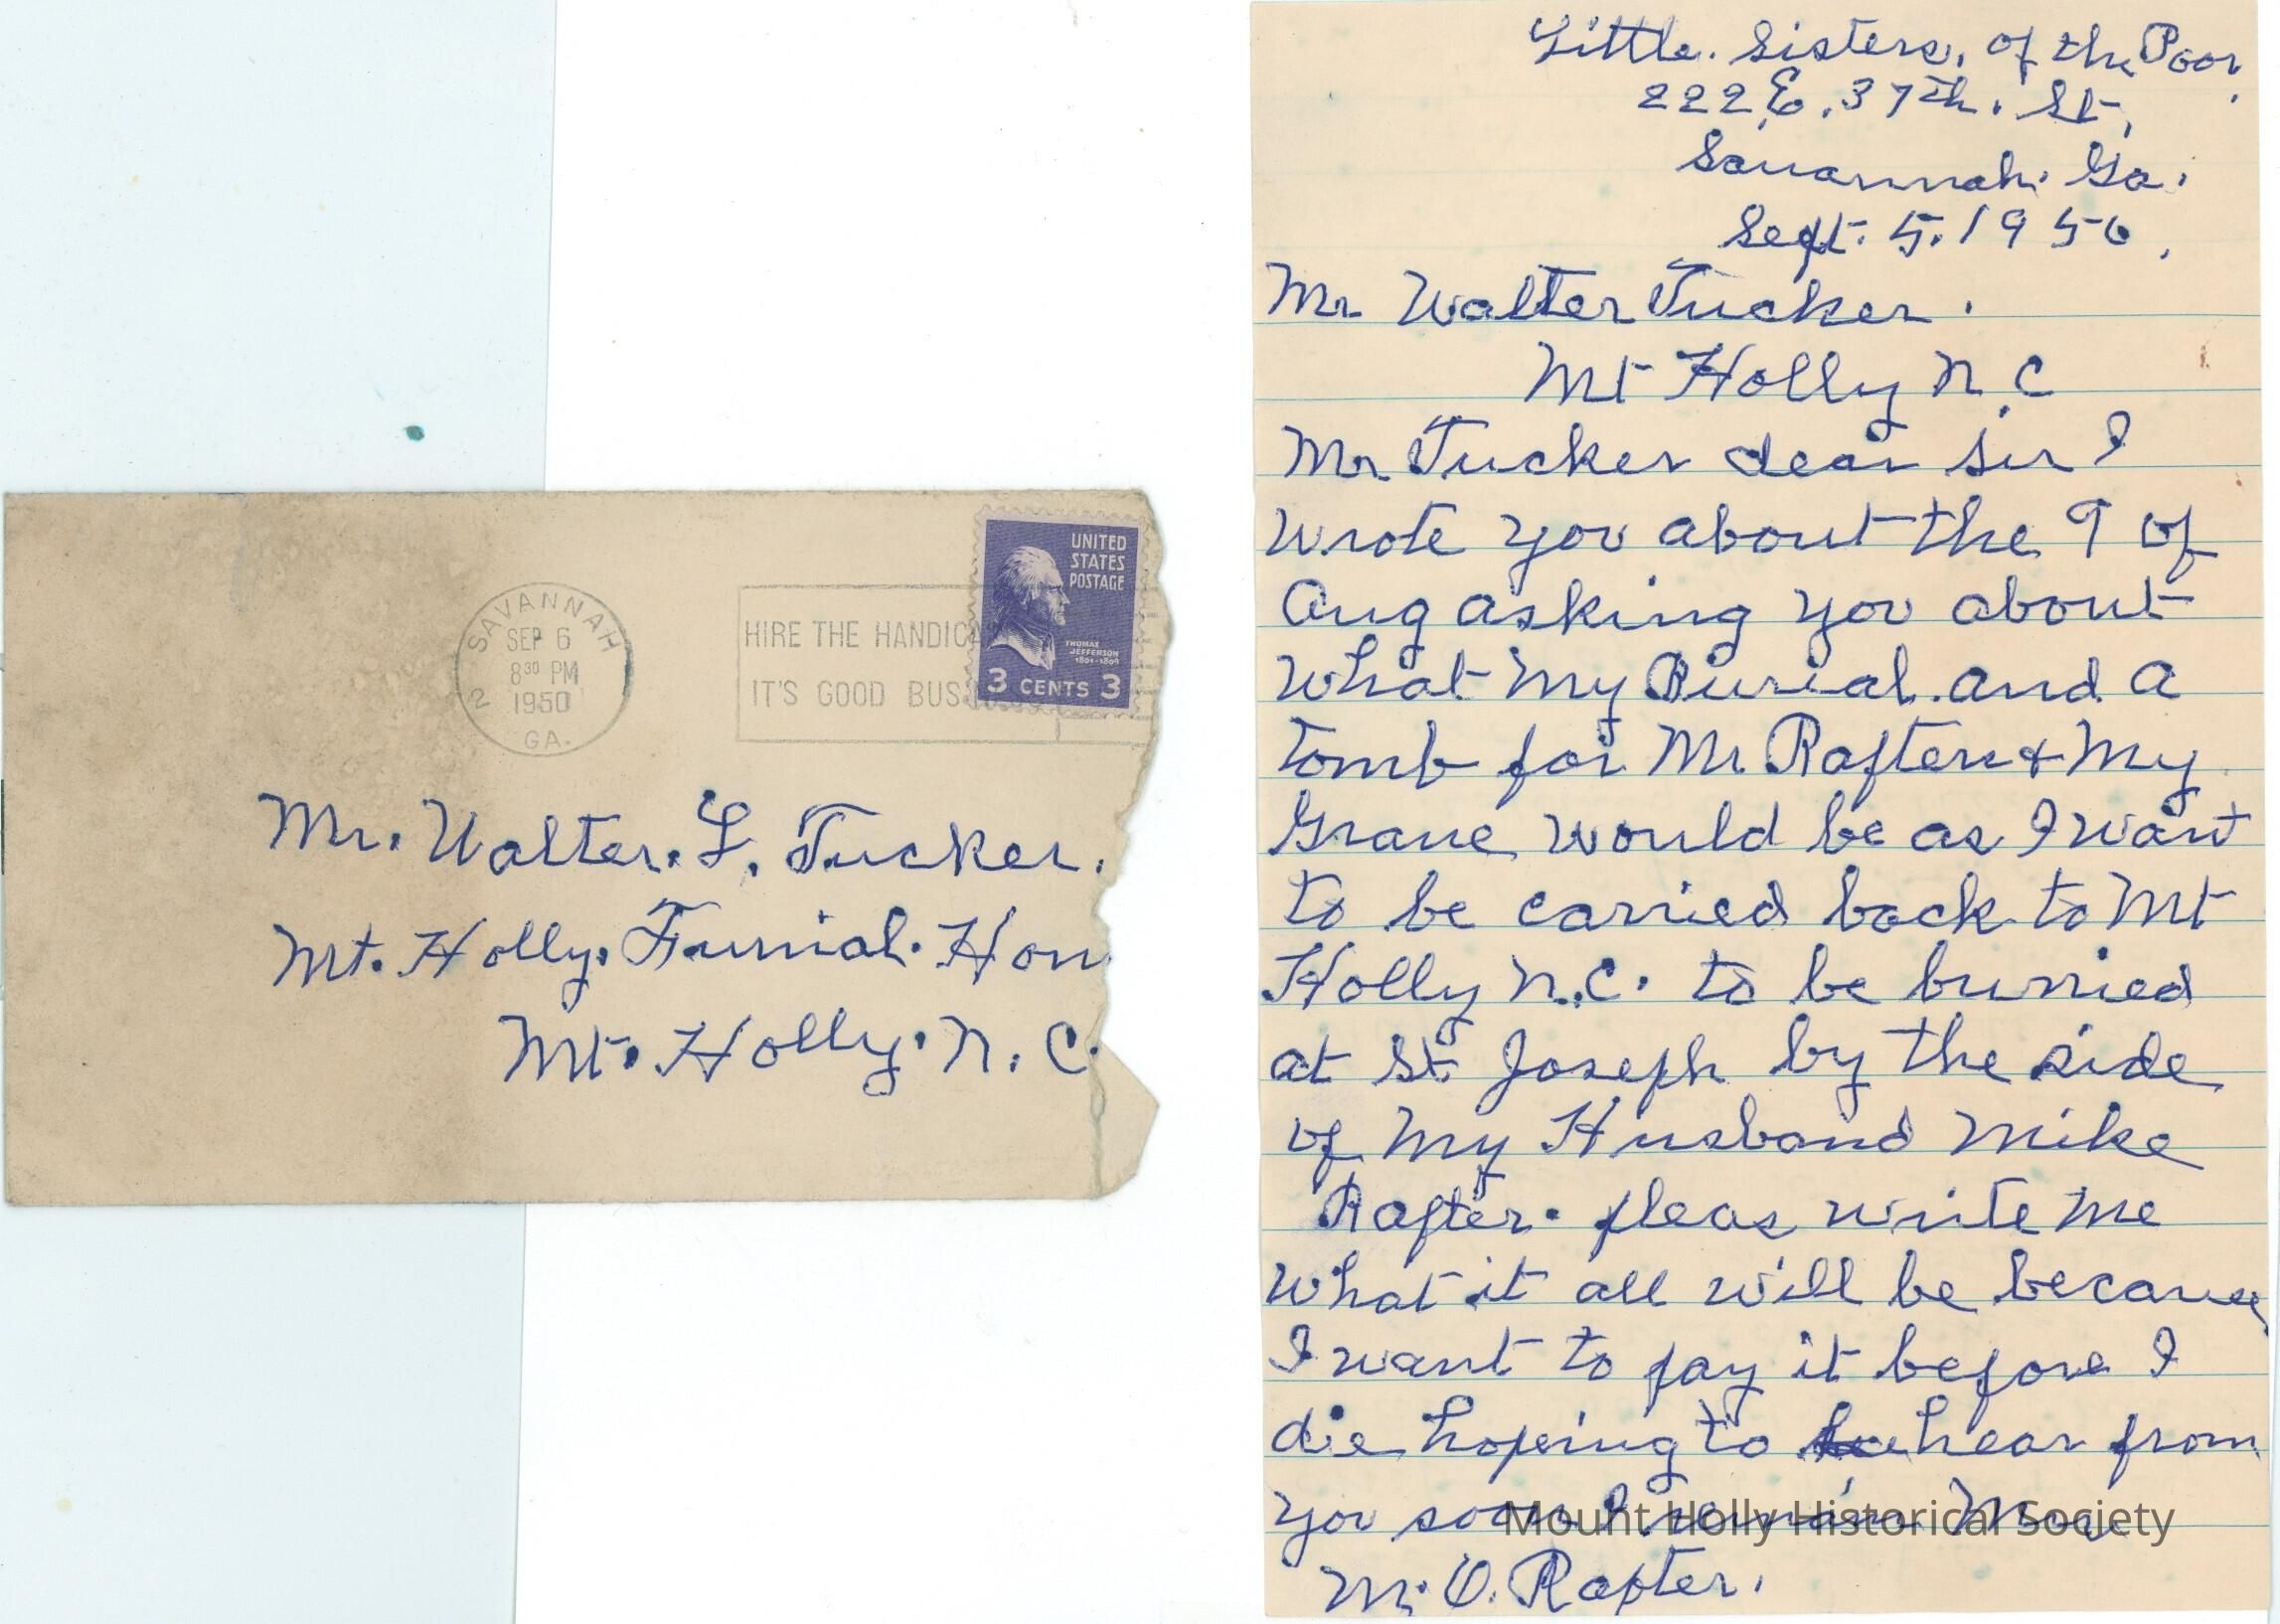 SAVANNAH
SEP 6
8³⁰ PM
1950
2
GA.
HIRE THE HANDICA
IT'S GOOD BUS
UNITED
STATES
POSTAGE
THOMAS
JEFFERSON
1801-1809
3 CENTS 3
Mr. Walter. L. Tucker.
Mt. Holly. Funial. Hom
Mt. Holly. N. C.
Little. Sisters. of the Poor.
222 E. 37th. St,
Savannah. Ga.
Sept. 5. 1950.
Mr Walter Tucker.
Mt Holly N.C
Mr. Tucker dear sir I
wrote you about the 9 of
Aug asking you about
What My Burial. and a
tomb for Mr Rafters & My
Grave would be as I want
to be carried back to Mt
Holly N.C. to be burried
at St Joseph by the side
of My Husband Mike
Rafter. pleas write Me
What it all will be because
I want to pay it before I
die hoping to hear from
you soon I remain Mrs
M. O. Rafter.
Mount Holly Historical Society